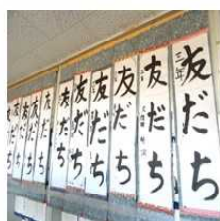 友だち
友だち
友だち
友だち
友だち
友だち
友だち
友だち
友だち
三年